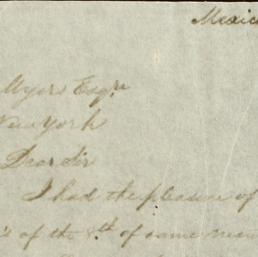 Mexico
Myers Esqr.
New York
Dear Sir
I had the pleasure of
's of the 8th of same